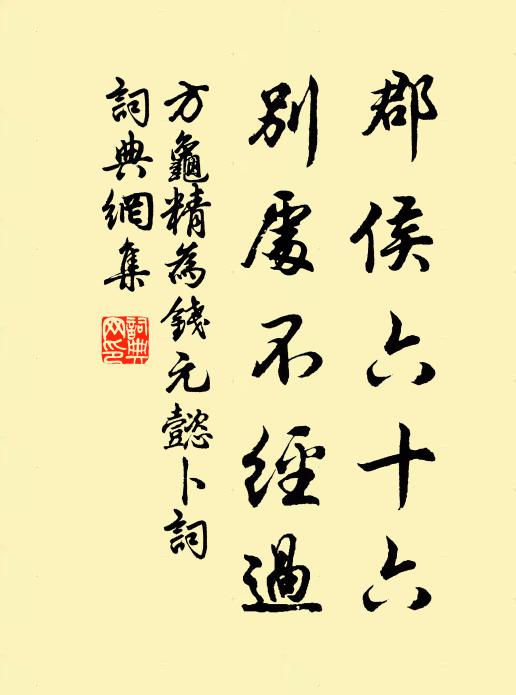 郡侯六十六
別處不經過
方龜精為錢元懿卜詞
詞典網集
詞典
网印